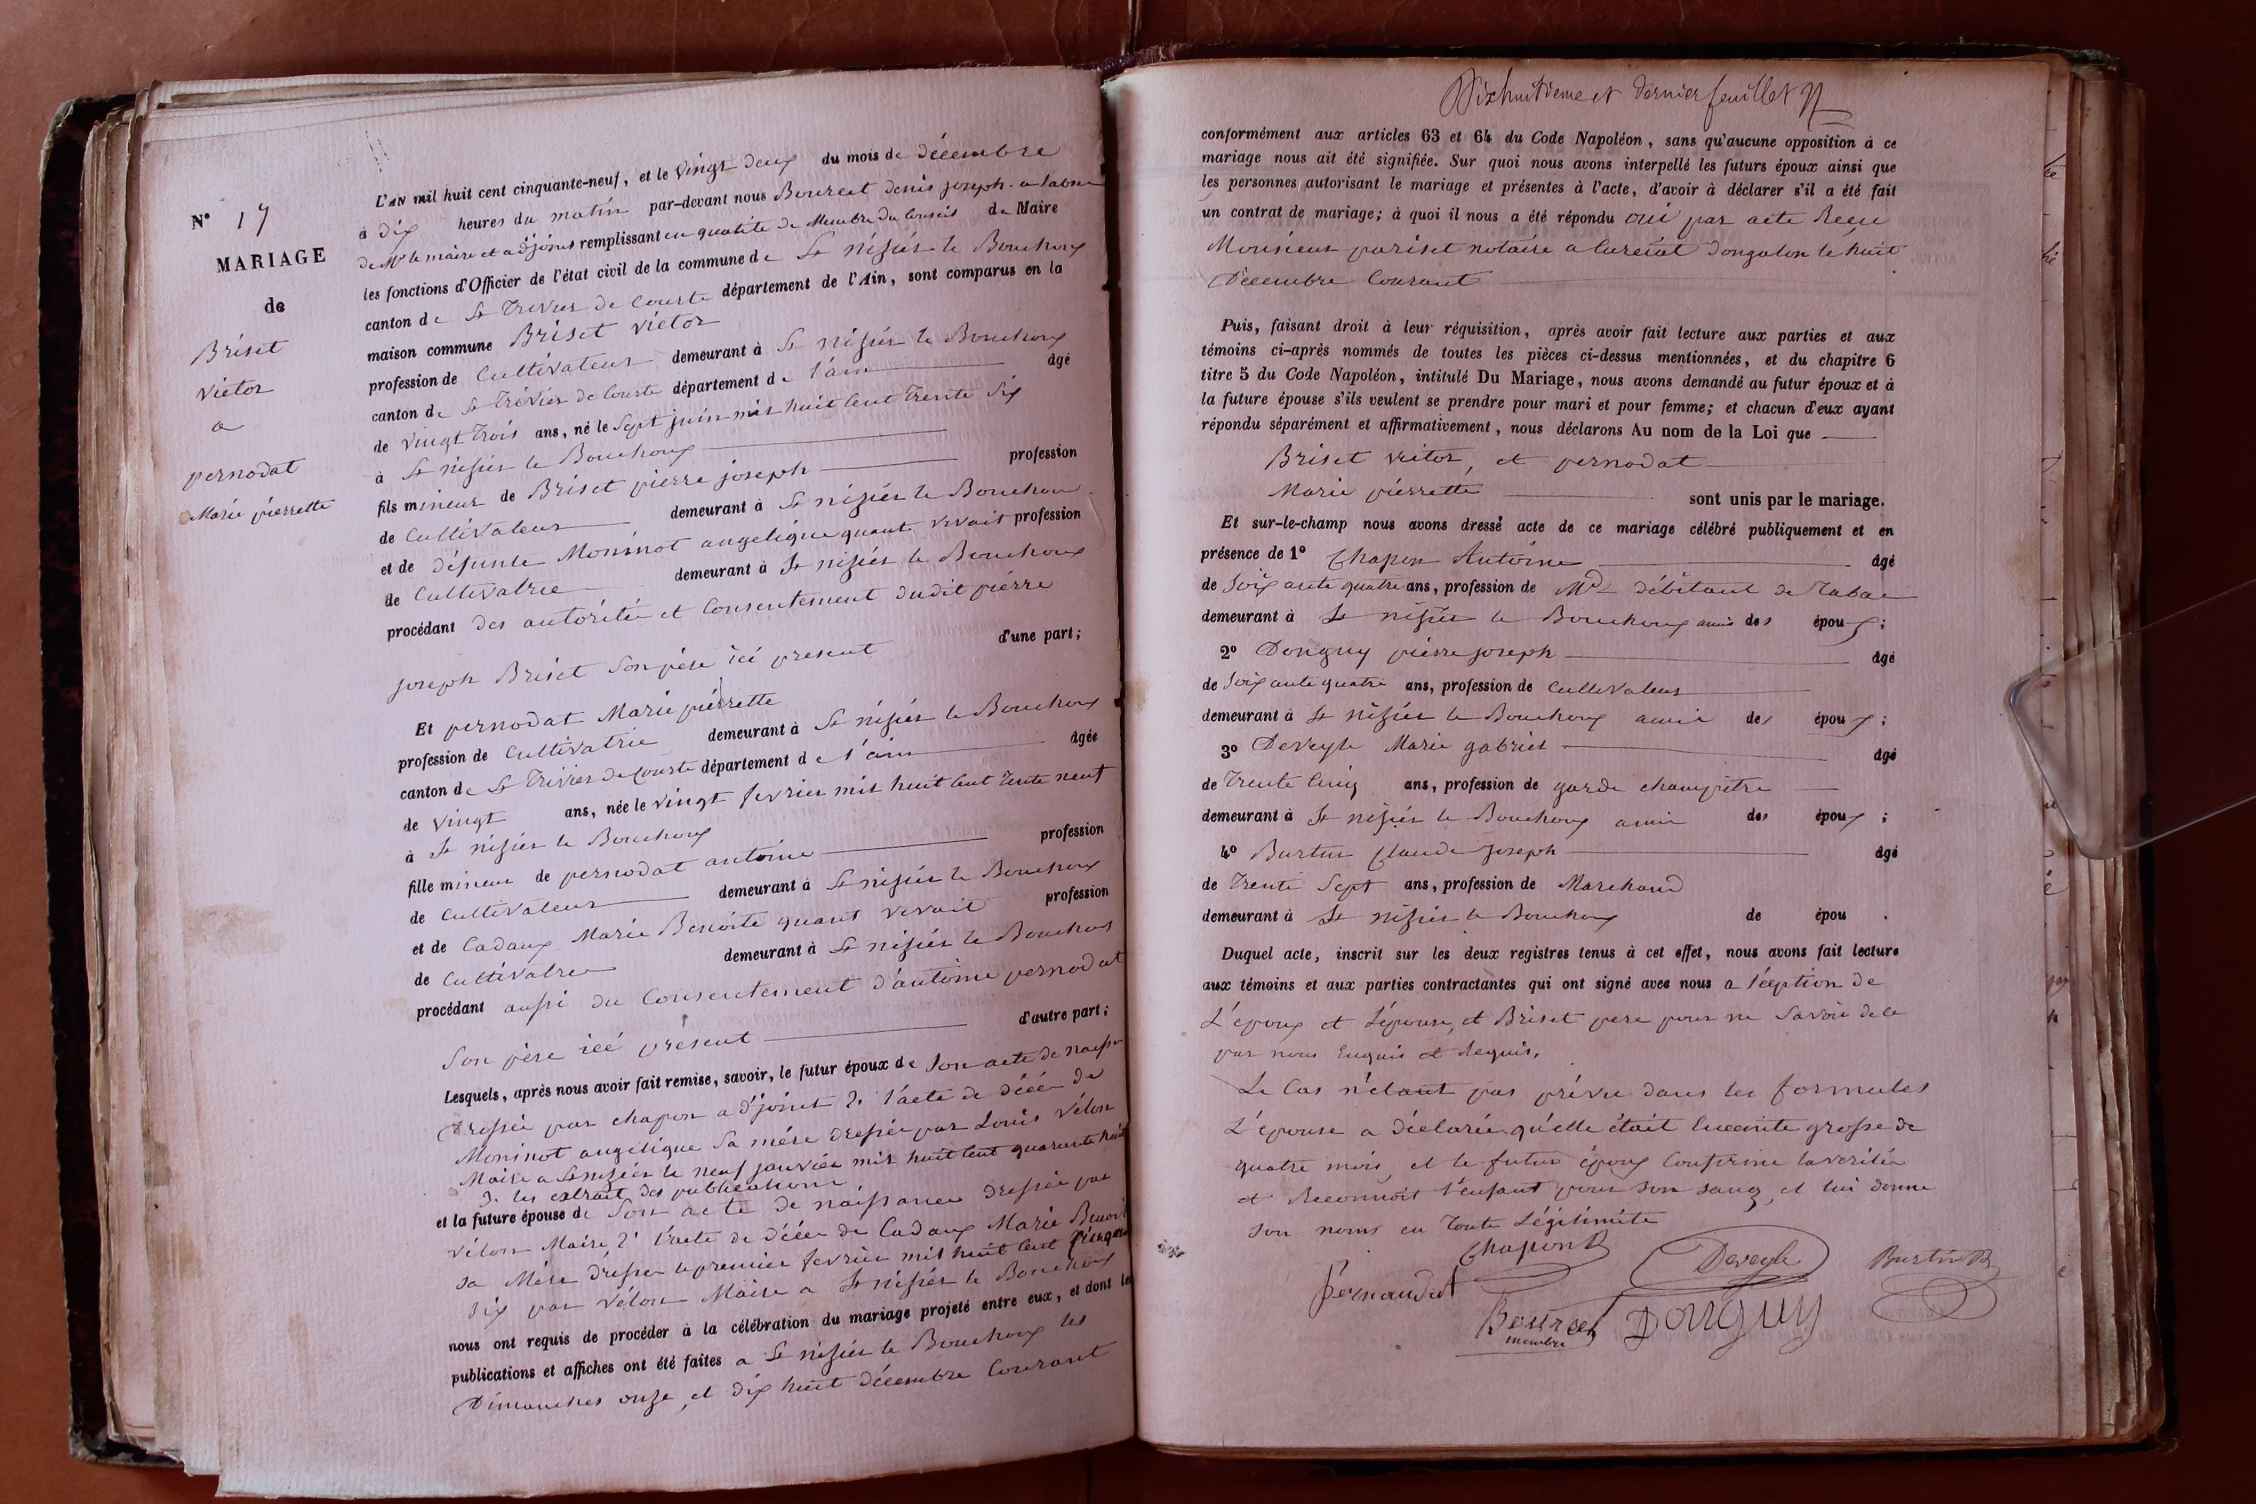 N° 17
MARIAGE
de
Briset
victor
a
pernodat
Marie piérrette
L'AN mil huit cent cinquante-neuf, et le vingt deux du mois de décembre
à dix heures du matin par-devant nous Bourcet denis joseph a labse
de Mr le maire et adjoint remplissant en quatité de Membre du Conseil de Maire
les fonctions d'Officier de l'état civil de la commune de St nisiér le Bouchoux
canton de St Trivier de Courte département de l'Ain, sont comparus en la
maison commune Briset victor
profession de Cultivateur demeurant à St nisiér le Bouchoux
canton de St Trivier de Courte département de l'ain âgé
de vingt trois ans, né le Sept juin mil huit Cent Trente Six
à St nisiér le Bouchoux
fils mineur de Briset piérre joseph profession
de Cultivateur demeurant à St nisiér le Bouchoux
et de défunte Moninot angelique quant vivait profession
de Cultivatrice demeurant à St nisiér le Bouchoux
procédant des autorité et Consentement dudit piérre
joseph Briset Son pére ici present d'une part;
Et pernodat Marie piérrette
profession de Cultivatrie demeurant à St nisiér le Bouchoux
canton de St Trivier de Courte département de l'ain âgée
de vingt ans, née le vingt fevrier mil huit Cent Trente neuf
à St nisiér le Bouchoux
fille mineur de pernodat antoine profession
de Cultivateur demeurant à St nisiér le Bouchoux
et de Cadaux Marie Benoite quant vivait profession
de Cultivatrice demeurant à St nisiér le Bouchoux
procédant aussi du Consentement d'antoine pernodat
Son pére icé présent d'autre part;
Lesquels, après nous avoir fait remise, savoir, le futur époux de Son acte de naissan
Dressée par chapon adjoint 2. l'acte de décé de
Moninot angelique Sa mére dressée par Louis vélon
Maire a St nisiér le neuf janviér mil huit Cent quarante huit
3. les extrait des publications
et la future épouse de Son acte de naissance dressée par
vélon Maire, 2. l'acte de décé de Cadaux Marie Benoi
Sa Mére dressée le premier fevrier mil huit Cent Cinquan
Six par vélon Maire a St nisiér le Bouchoux
nous ont requis de procéder à la célébration du mariage projeté entre eux, et dont le
publications et affiches ont été faites a St nisiér le Bouchoux les
Dimanches onze, et dix huit décembre Courant
Dixhuitieme et dernier feuillet
conformément aux articles 63 et 64 du Code Napoléon, sans qu'aucune opposition à ce
mariage nous ait été signifiée. Sur quoi nous avons interpellé les futurs époux ainsi que
les personnes autorisant le mariage et présentes à l'acte, d'avoir à déclarer s'il a été fait
un contrat de mariage; à quoi il nous a été répondu oui par acte Recu
Monsieur pariset notaire a Curciat dongalon le huit
Decembre Courant
Puis, faisant droit à leur réquisition, après avoir fait lecture aux parties et aux
témoins ci-après nommés de toutes les pièces ci-dessus mentionnées, et du chapitre 6
titre 5 du Code Napoléon, intitulé Du Mariage, nous avons demandé au futur époux et à
la future épouse s'ils veulent se prendre pour mari et pour femme; et chacun d'eux ayant
répondu séparément et affirmativement, nous déclarons Au nom de la Loi que
Briset victor, et pernodat
Marie piérrette sont unis par le mariage.
Et sur-le-champ nous avons dressé acte de ce mariage célébré publiquement et en
présence de 1° Chapon Antoine âgé
de Soixante quatre ans, profession de Md débitant de Tabac
demeurant à St nisiér le Bouchoux amis des époux;
2° Donguy piérre joseph âgé
de Soixante quatre ans, profession de Cultivateur
demeurant à St nisiér le Bouchoux amis des époux;
3° Deveyle Marie gabriel âgé
de Trente Cinq ans, profession de garde champétre
demeurant à St nisiér le Bouchoux amis des époux;
4° Burtin Claude joseph âgé
de Trente Sept ans, profession de Marchand
demeurant à St nisiér le Bouchoux de épou .
Duquel acte, inscrit sur les deux registres tenus à cet effet, nous avons fait lecture
aux témoins et aux parties contractantes qui ont signé avec nous a l'éxption de
L'époux et L'épouse, et Briset pere pour ne Savoir de ce
par nous Enquis et Requis.
Le Cas n'etant pas prévu dans les formules
L'épouse a déclarée qu'elle était Enceinte grosse de
quatre mois, et le futur époux Confirme la veritée
et Reconnoit l'enfant pour Son Sang, et lui donne
Son noms en Toute Légitimité
Chapon
Deveyle
Burtin
Pernaudat
Bourcet
membre
Donguy